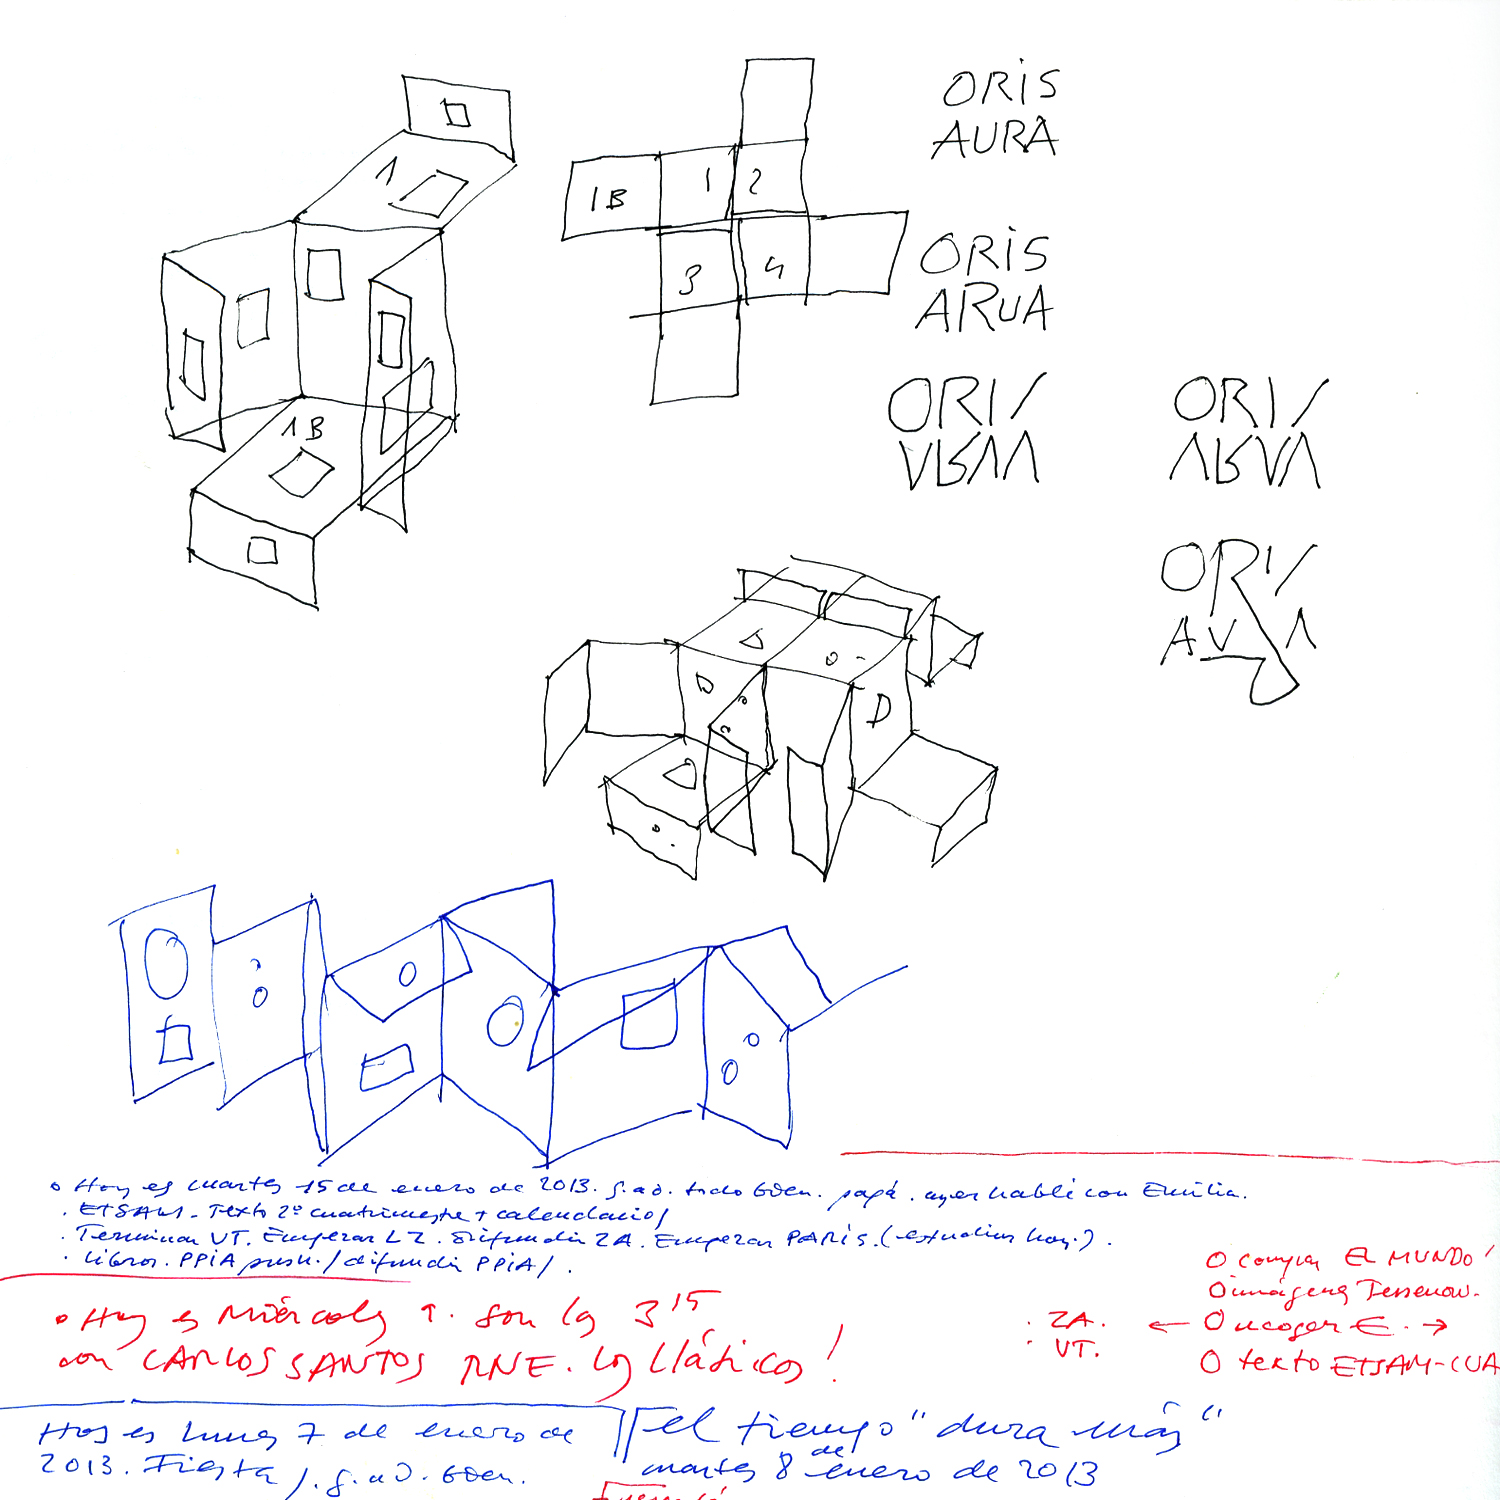 ORIS
AURA
1
1B
1B 1 2
3 4
ORIS
ARUA
ORIS
ORIS
ORIS
D
Hoy es martes 15 de enero de 2013. g. a D. todo bien. papá. ayer hablé con Emilia.
. ETSAM - Texto 2º cuatrimestre + calendario/
. Terminar VT. Empezar LZ. Difundir ZA. Empezar PARIS. (estudios hoy.).
. libros. PPIA / difundir PPIA/.
Hoy es Miércoles 9. Son las 3 15
con CARLOS SANTOS RNE. los clásicos!
O compra EL MUNDO!
O imágenes
. ZA. ← O recoger €. →
. VT.
O texto ETSAM-CUA
Hoy es lunes 7 de enero de
2013. Fiesta/. g. a D. bien.
el tiempo "dura más"
martes 8 de enero de 2013